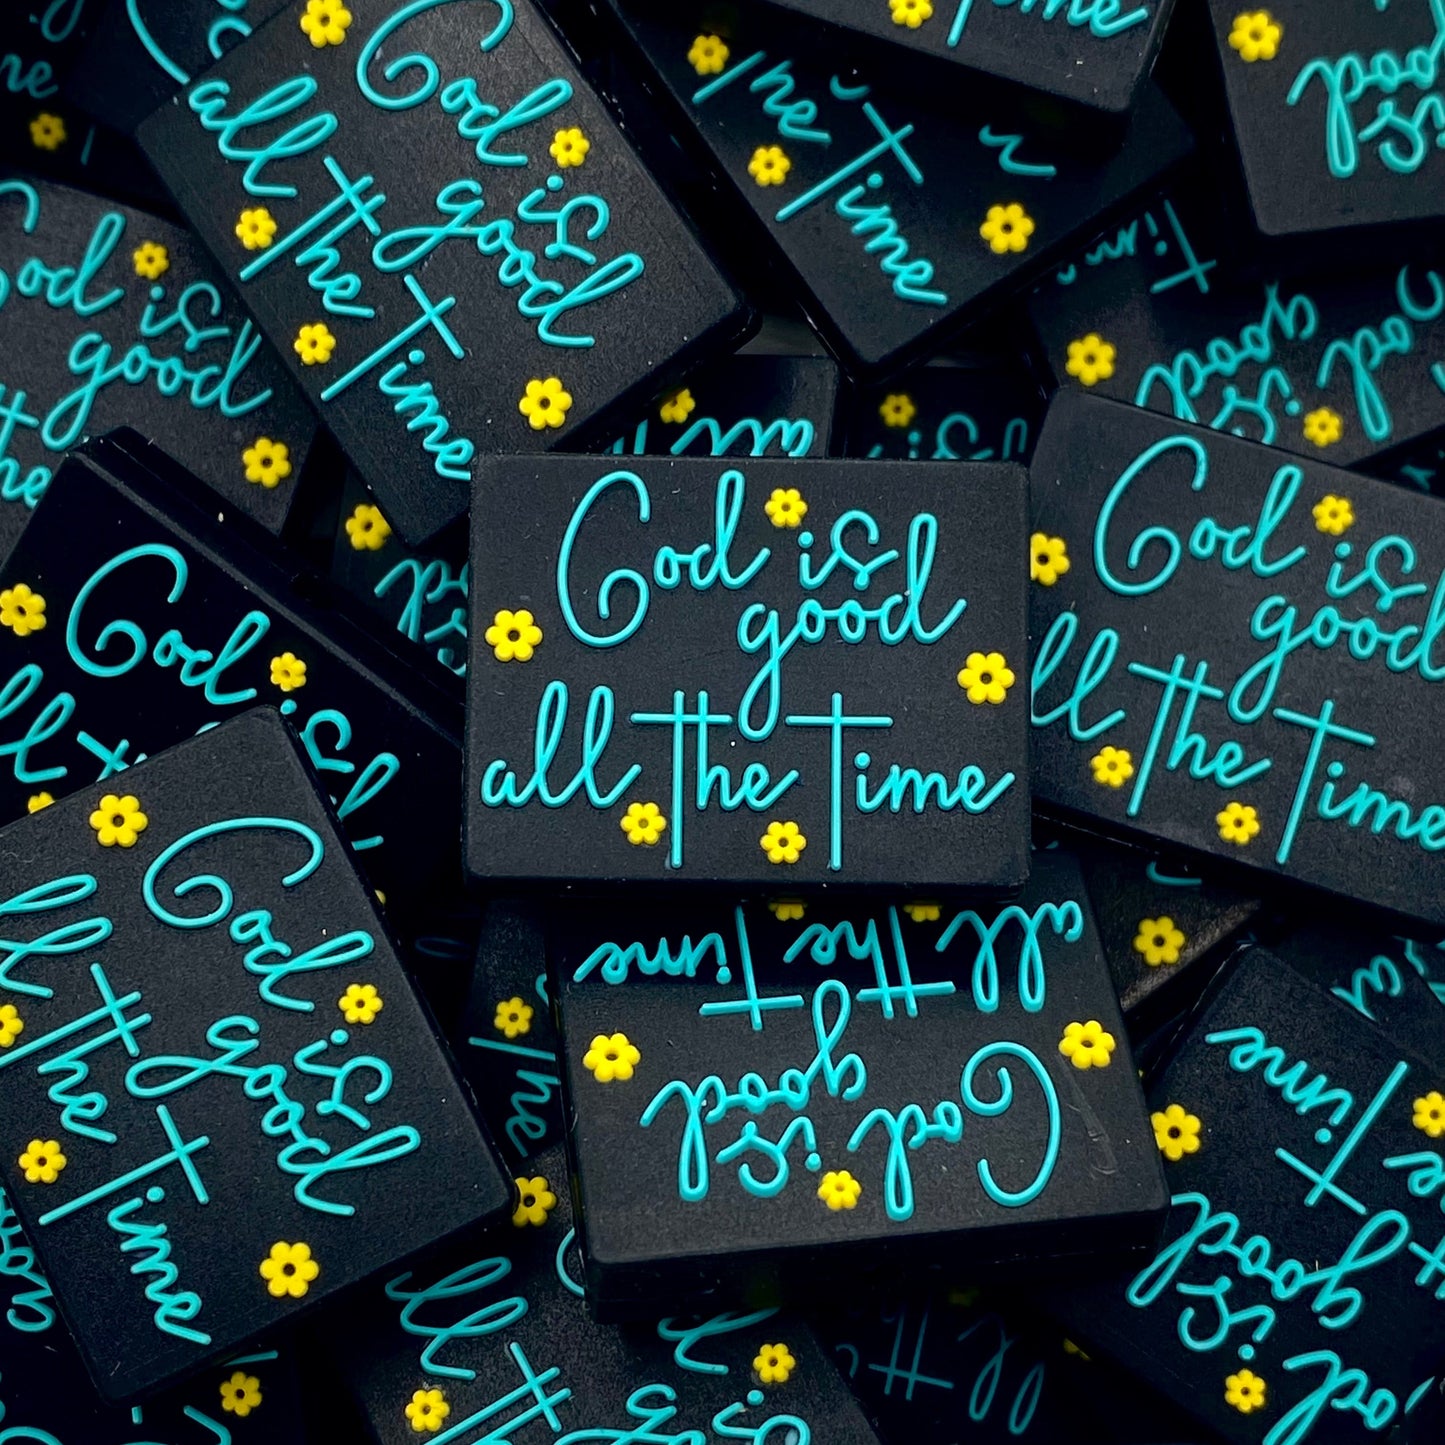 God is
good
all the Time